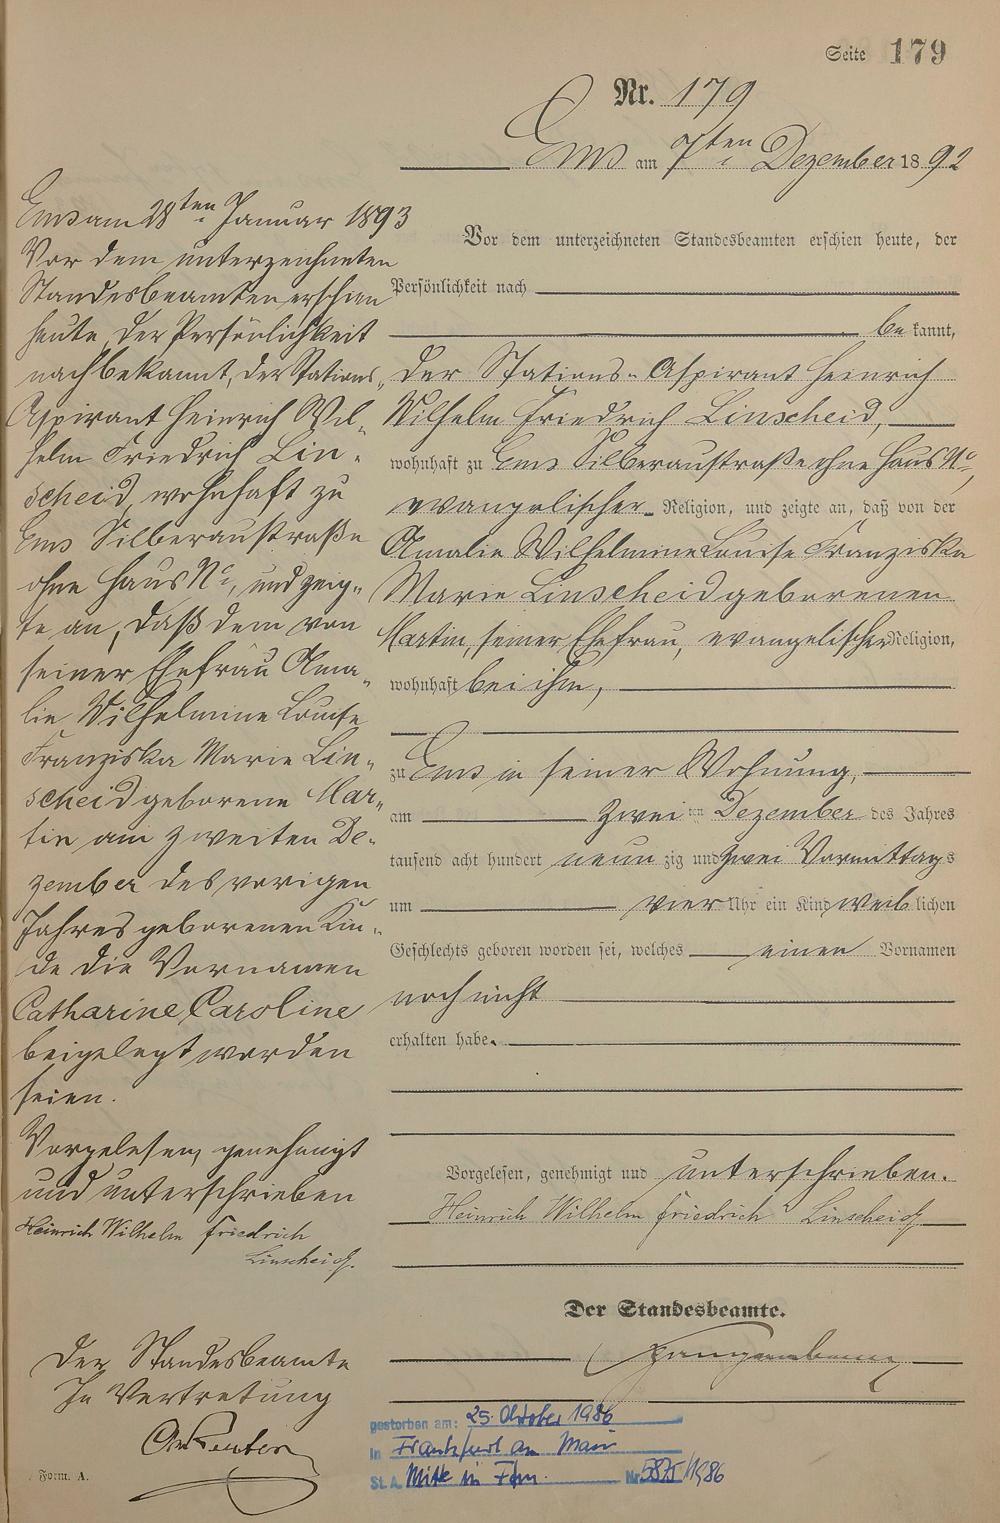 Seite 179
Nr. 179
Ems am 7ten Dezember 1892
Vor dem unterzeichneten Standesbeamten erschien heute, der
Persönlichkeit nach
bekannt,
der Stations-Aspirant Heinrich
Wilhelm Friedrich Linscheid,
wohnhaft zu Ems Silberaustraße ohne Haus No,
evangelischer Religion, und zeigte an, daß von der
Amalie Wilhelmine Louise Franziska
Marie Linscheid geborenen
Martin, seiner Ehefrau, evangelischer Religion,
wohnhaft bei ihm,
zu Ems in seiner Wohnung,
am zweiten Dezember des Jahres
tausend acht hundert neunzig und zwei Vormittags
um vier Uhr ein Kind weiblichen
Geschlechts geboren worden sei, welches einen Vornamen
noch nicht
erhalten habe.
Vorgelesen, genehmigt und unterschrieben.
Heinrich Wilhelm Friedrich Linscheid
Der Standesbeamte.
Ems am 28ten Januar 1893
Vor dem unterzeichneten
Standesbeamten erschien
heute, der Persönlichkeit
nach bekannt, der Stations-
Aspirant Heinrich Wil-
helm Friedrich Lin-
scheid, wohnhaft zu
Ems Silberaustraße
ohne Haus No, und zeig-
te an, daß dem von
seiner Ehefrau Ama-
lie Wilhelmine Louise
Franziska Marie Lin-
scheid geborene Mar-
tin am zweiten De-
zember des vorigen
Jahres geborenen Kin-
de die Vornamen
Catharine Caroline
beigelegt worden
seien.
Vorgelesen, genehmigt
und unterschrieben
Heinrich Wilhelm Friedrich
Linscheid.
Der Standesbeamte
In Vertretung
Form. A.
gestorben am: 25. Oktober 1986
in Frankfurt am Main
St.A. Mitte in Ffm. Nr. 5875/1986